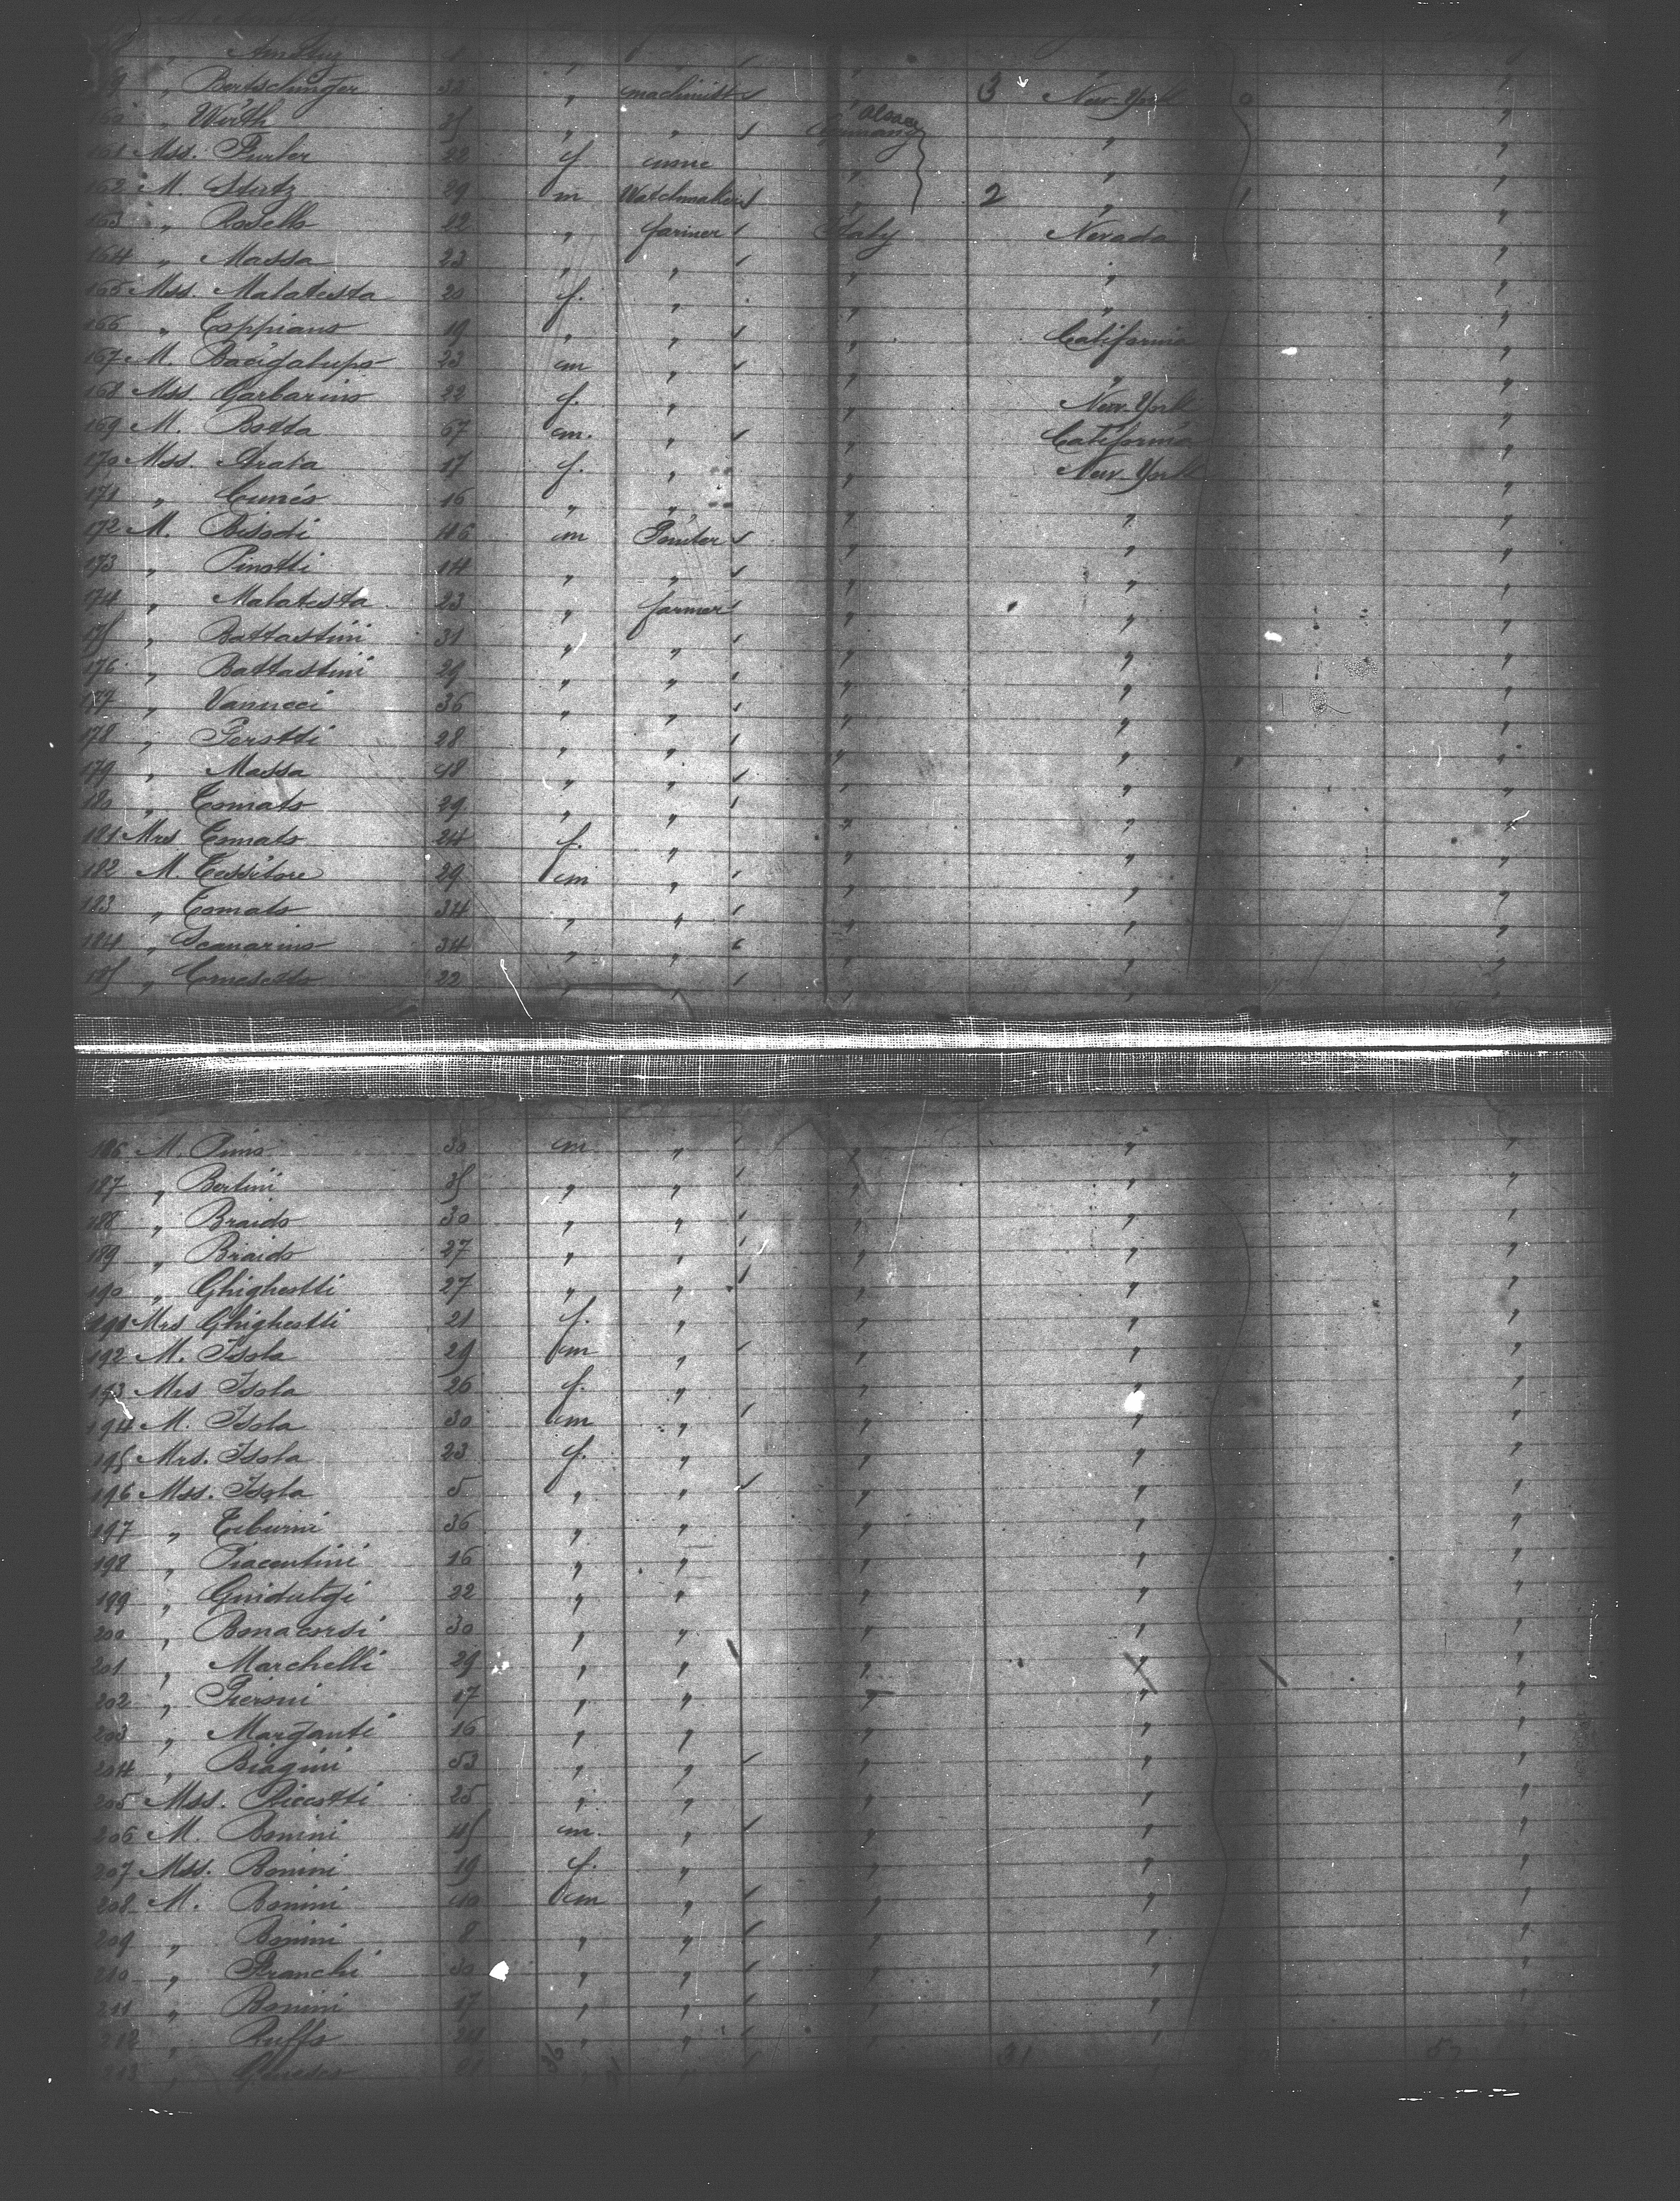 159 " Bertschinger 33 " machinist " 3 New-York "
160 " Wirth 35 " " Germany Alsace " "
161 Mss. Furler 22 f. " " "
162 M Stertz 29 m Watchmaker " 2 " "
163 " Rosello 22 " farmer Italy Nevada "
164 " Massa 23 " " " " "
165 Mss. Malatesta 20 f. " " " "
166 " Toppiano 19 " " " California "
167 M. Bacigalupo 23 m " " " "
168 Mss. Garbarino 22 f. " " New-York "
169 M. Botta 67 m. " " California "
170 Mss. Arata 17 f. " " New-York "
171 " Cuneo 16 " " " "
172 M. Bisodi 46 m " " "
173 " Pinotti 14 " " " " "
174 " Malatesta 23 " farmer " " "
175 " Battastini 31 " " " " "
176 " Battastini 29 " " " " "
177 " Vanucci 36 " " " " "
178 " Perotti 28 " " " " "
179 " Massa 48 " " " " "
180 " Tomato 29 " " " "
181 Mrs Tomato 24 f. " " " "
182 M. Tassitore 29 m " " " "
183 " Tomato 34 " " " " "
184 " Scanarino 34 " " " " "
185 " 22 " " " " "
186 M. Pino 30 m " " " "
187 " Bertini 35 " " " " "
188 " Braido 30 " " " " "
189 " Braido 27 " " " " "
190 " Ghighotti 27 " " " " "
191 Mrs Ghighotti 21 f. " " " "
192 M. Isola 29 m " " " "
193 Mrs Isola 26 f. " " " "
194 M. Isola 30 m " " " "
195 Mrs. Isola 23 f. " " " "
196 Mss. Isola 5 " " " " "
197 " Tiburni 36 " " " " "
198 " Piacentini 16 " " " " "
199 " 22 " " " " "
200 " Bonacorsi 30 " " " " "
201 " Marchelli 29 " " " " "
202 " Pieroni 17 " " " " "
203 " Marganti 16 " " " " "
204 " Biagini 53 " " " " "
205 Mss. Riccotti 25 " " " " "
206 M. Bonini 45 m. " " " "
207 Mss. Bonini 19 f. " " " "
208 M. Bonini 10 m " " " "
209 " Bonini 8 " " " " "
210 " Franchi 30 " " " " "
211 " Bonini 17 " " " " "
212 " Ruffo 24 " " " " "
213 "